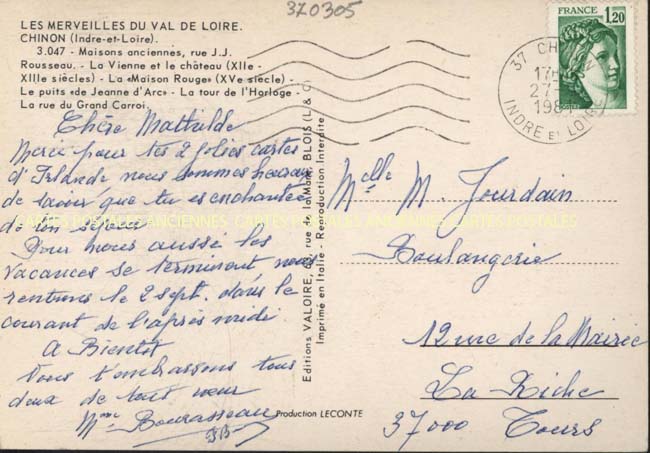 370305
LES MERVEILLES DU VAL DE LOIRE.
CHINON (Indre-et-Loire).
3.047 - Maisons anciennes, rue J.J.
Rousseau. - La Vienne et le château (XIIe -
XIIIe siècles) - La «Maison Rouge» (XVe siècle) -
Le puits «de Jeanne d'Arc» - La tour de l'Horloge -
La rue du Grand Carroi.
FRANCE
1,20
POSTES
37 CHINON
27-
1981
INDRE ET LOIRE
Chère Mathilde
Merci pour tes 2 jolies cartes
d'Irlande nous sommes heureux
de savoir que tu es enchantée
de ton séjour
Pour nous aussi les
vacances se terminent nous
rentrons le 2 sept. dans le
courant de l'après midi
A Bientôt
Nous t'embrassons tous
deux de tout cœur
Mme Bourasseau
Editions VALOIRE, rue de la Mare, BLOIS (L & C)
Imprimé en Italie - Reproduction Interdite
Melle M. Jourdain
Boulangerie
12 rue de la Mairie
La Riche
37000 Tours
Production LECONTE
CARTES POSTALES ANCIENNES CARTES POSTALES ANCIENNES CARTES POSTALES